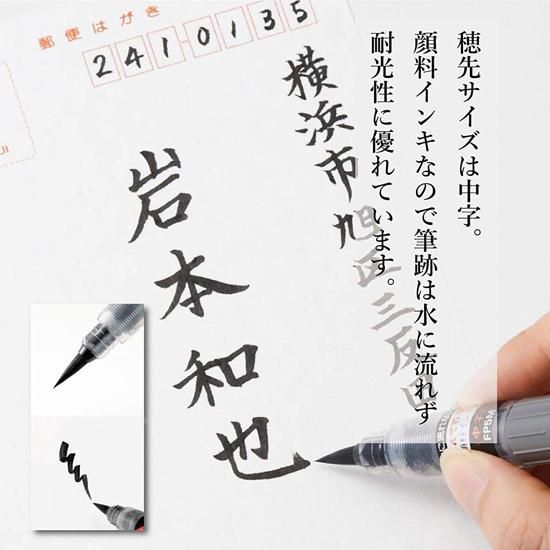 郵便はがき
2410135
横浜市旭区三反田
岩本和也
穂先サイズは中字。
顔料インキなので筆跡は水に流れず
耐光性に優れています。
中字
FP5M